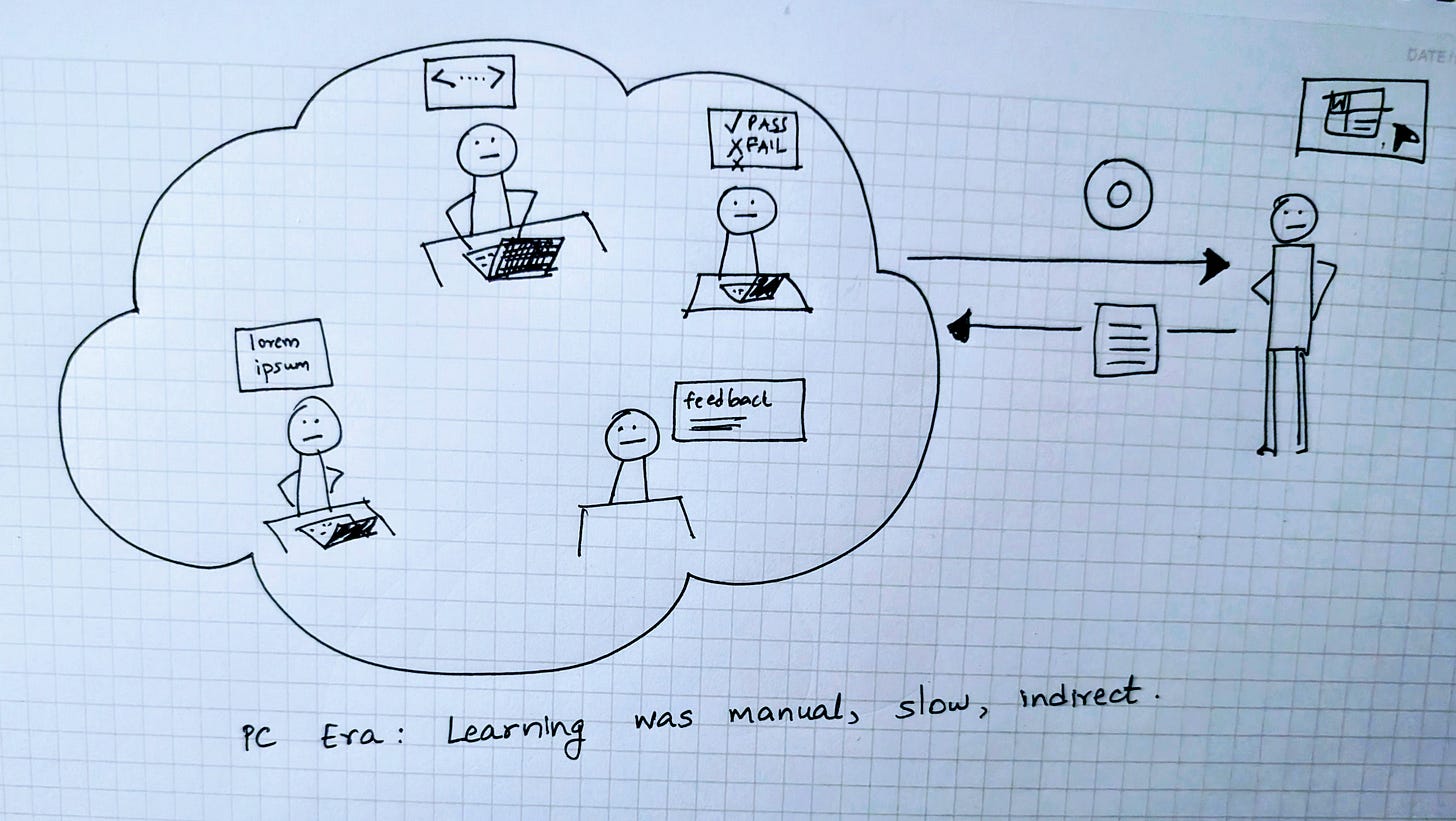 DATE
<.....>
✓ PASS
X FAIL
X
W
lorem
ipsum
feedback
PC Era: Learning was manual, slow, indirect.